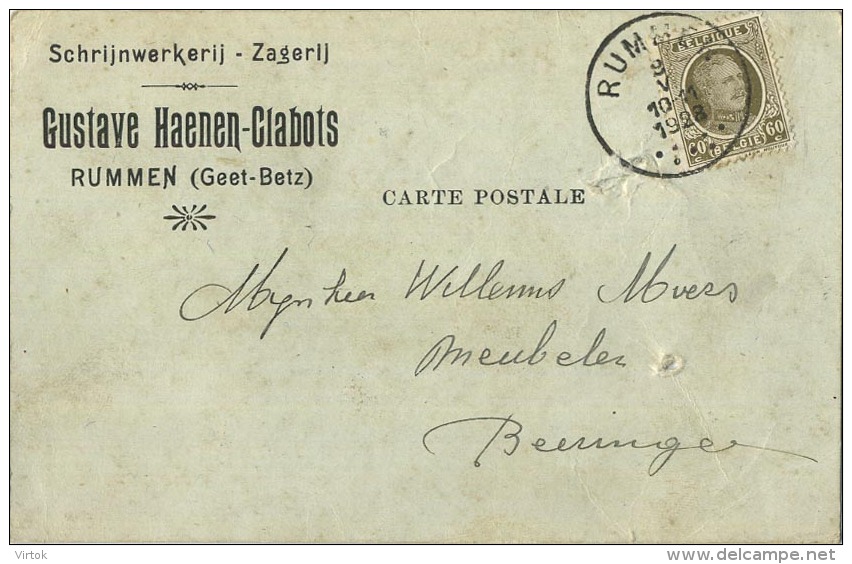 Schrijnwerkerij - Zagerij
Gustave Haenen-Clabots
RUMMEN (Geet-Betz)
CARTE POSTALE
BELGIQUE
60
(BELGIE)
10-11
1928
Mynheer Willems Moers
Meubelen
Beeringen
Virtok
www.delcampe.net